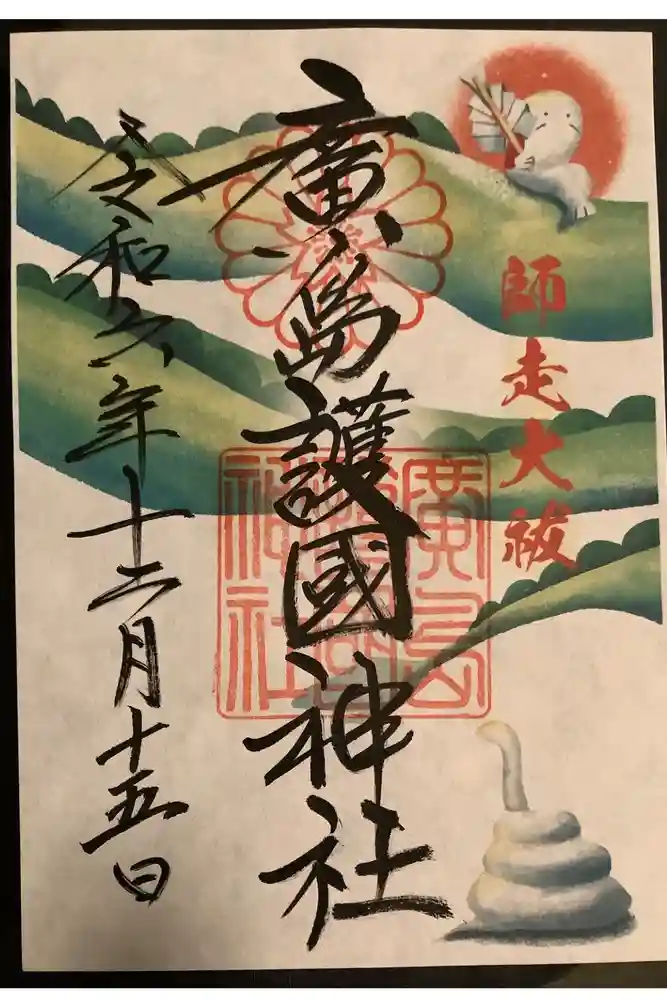 師走大祓
廣島護國神社
廣島
護國
神社
令和六年十二月十五日